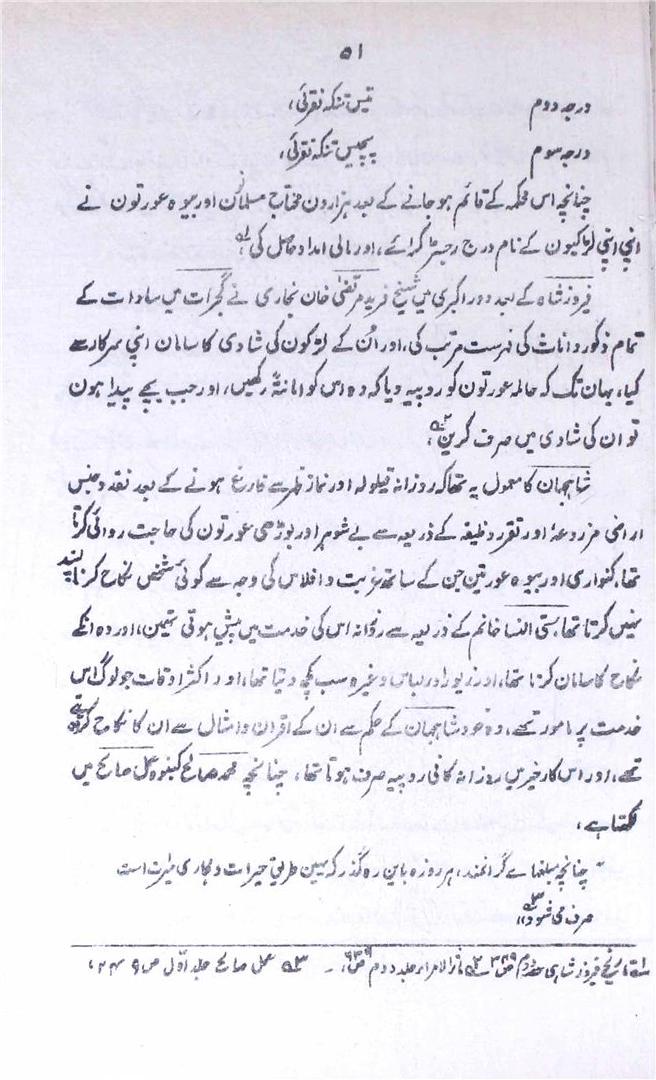 ۵۱
درجہ دوم تیس تنکہ نقرئی،
درجہ سوم پچیس تنکہ نقرئی،
چنانچہ اس محکمہ کے قائم ہوجانے کے بعد ہزارون محتاج مسلمان اور بیوہ عورتون نے
اپنی اپنی لڑکیون کے نام درج رجسٹر کرائے، اور مالی امداد حاصل کی،
فیروزشاہ کے بعد دور اکبری مین شیخ فرید مرتضیٰ خان بخاری نے گجرات مین سادات کے
تمام ذکور و اناث کی فہرست مرتب کی، اور اُن کے لڑکون کی شادی کا سامان اپنی سرکار سے
کیا، یہان تک کہ حاملہ عورتون کو روپیہ دیا کہ وہ اس کو امانتہً رکھین، اور جب بچے پیدا ہون
تو ان کی شادی مین صرف کرین،
شاہجہان کا معمول یہ تھا کہ روزانہ قیلولہ اور نماز ظہر سے فارغ ہونے کے بعد نقد و جنس
اراضی مزروعہ اور تقرر وظیفہ کے ذریعہ سے بے شوہر اور بوڑھی عورتون کی حاجت روائی کرتا
تھا، کنواری اور بیوہ عورتین جن کے ساتھ غربت و افلاس کی وجہ سے کوئی شخص نکاح کرنا پسند
نہین کرتا تھا، ستی النسا خانم کے ذریعہ سے روزانہ اس کی خدمت مین پیش ہوتی تھین، اور وہ انکے
نکاح کا سامان کرتا تھا، اور زیور اور لباس وغیرہ سب کچھ دیتا تھا، اور اکثر اوقات جو لوگ اس
خدمت پر مامور تھے، وہ خود شاہجہان کے حکم سے ان کے اقران و امثال سے ان کا نکاح کردیتے
تھے، اور اس کارخیر مین روزانہ کافی روپیہ صرف ہوتا تھا، چنانچہ محمد صالح کنبوہ عمل صالح مین
لکھتا ہے،
"چنانچہ مبلغہاے گرانمند، ہر روزہ باین رہ گذر کہ بہین طریق خیرات و مجاری مبرت است
صرف می شود"
لہ تاریخ فیروز شاہی ص ۳۴۹ ۲ہ مآثر الامراء جلد دوم ص ۶۳۹، ۳ہ عمل صالح جلد اوّل ص ۲۴۹،